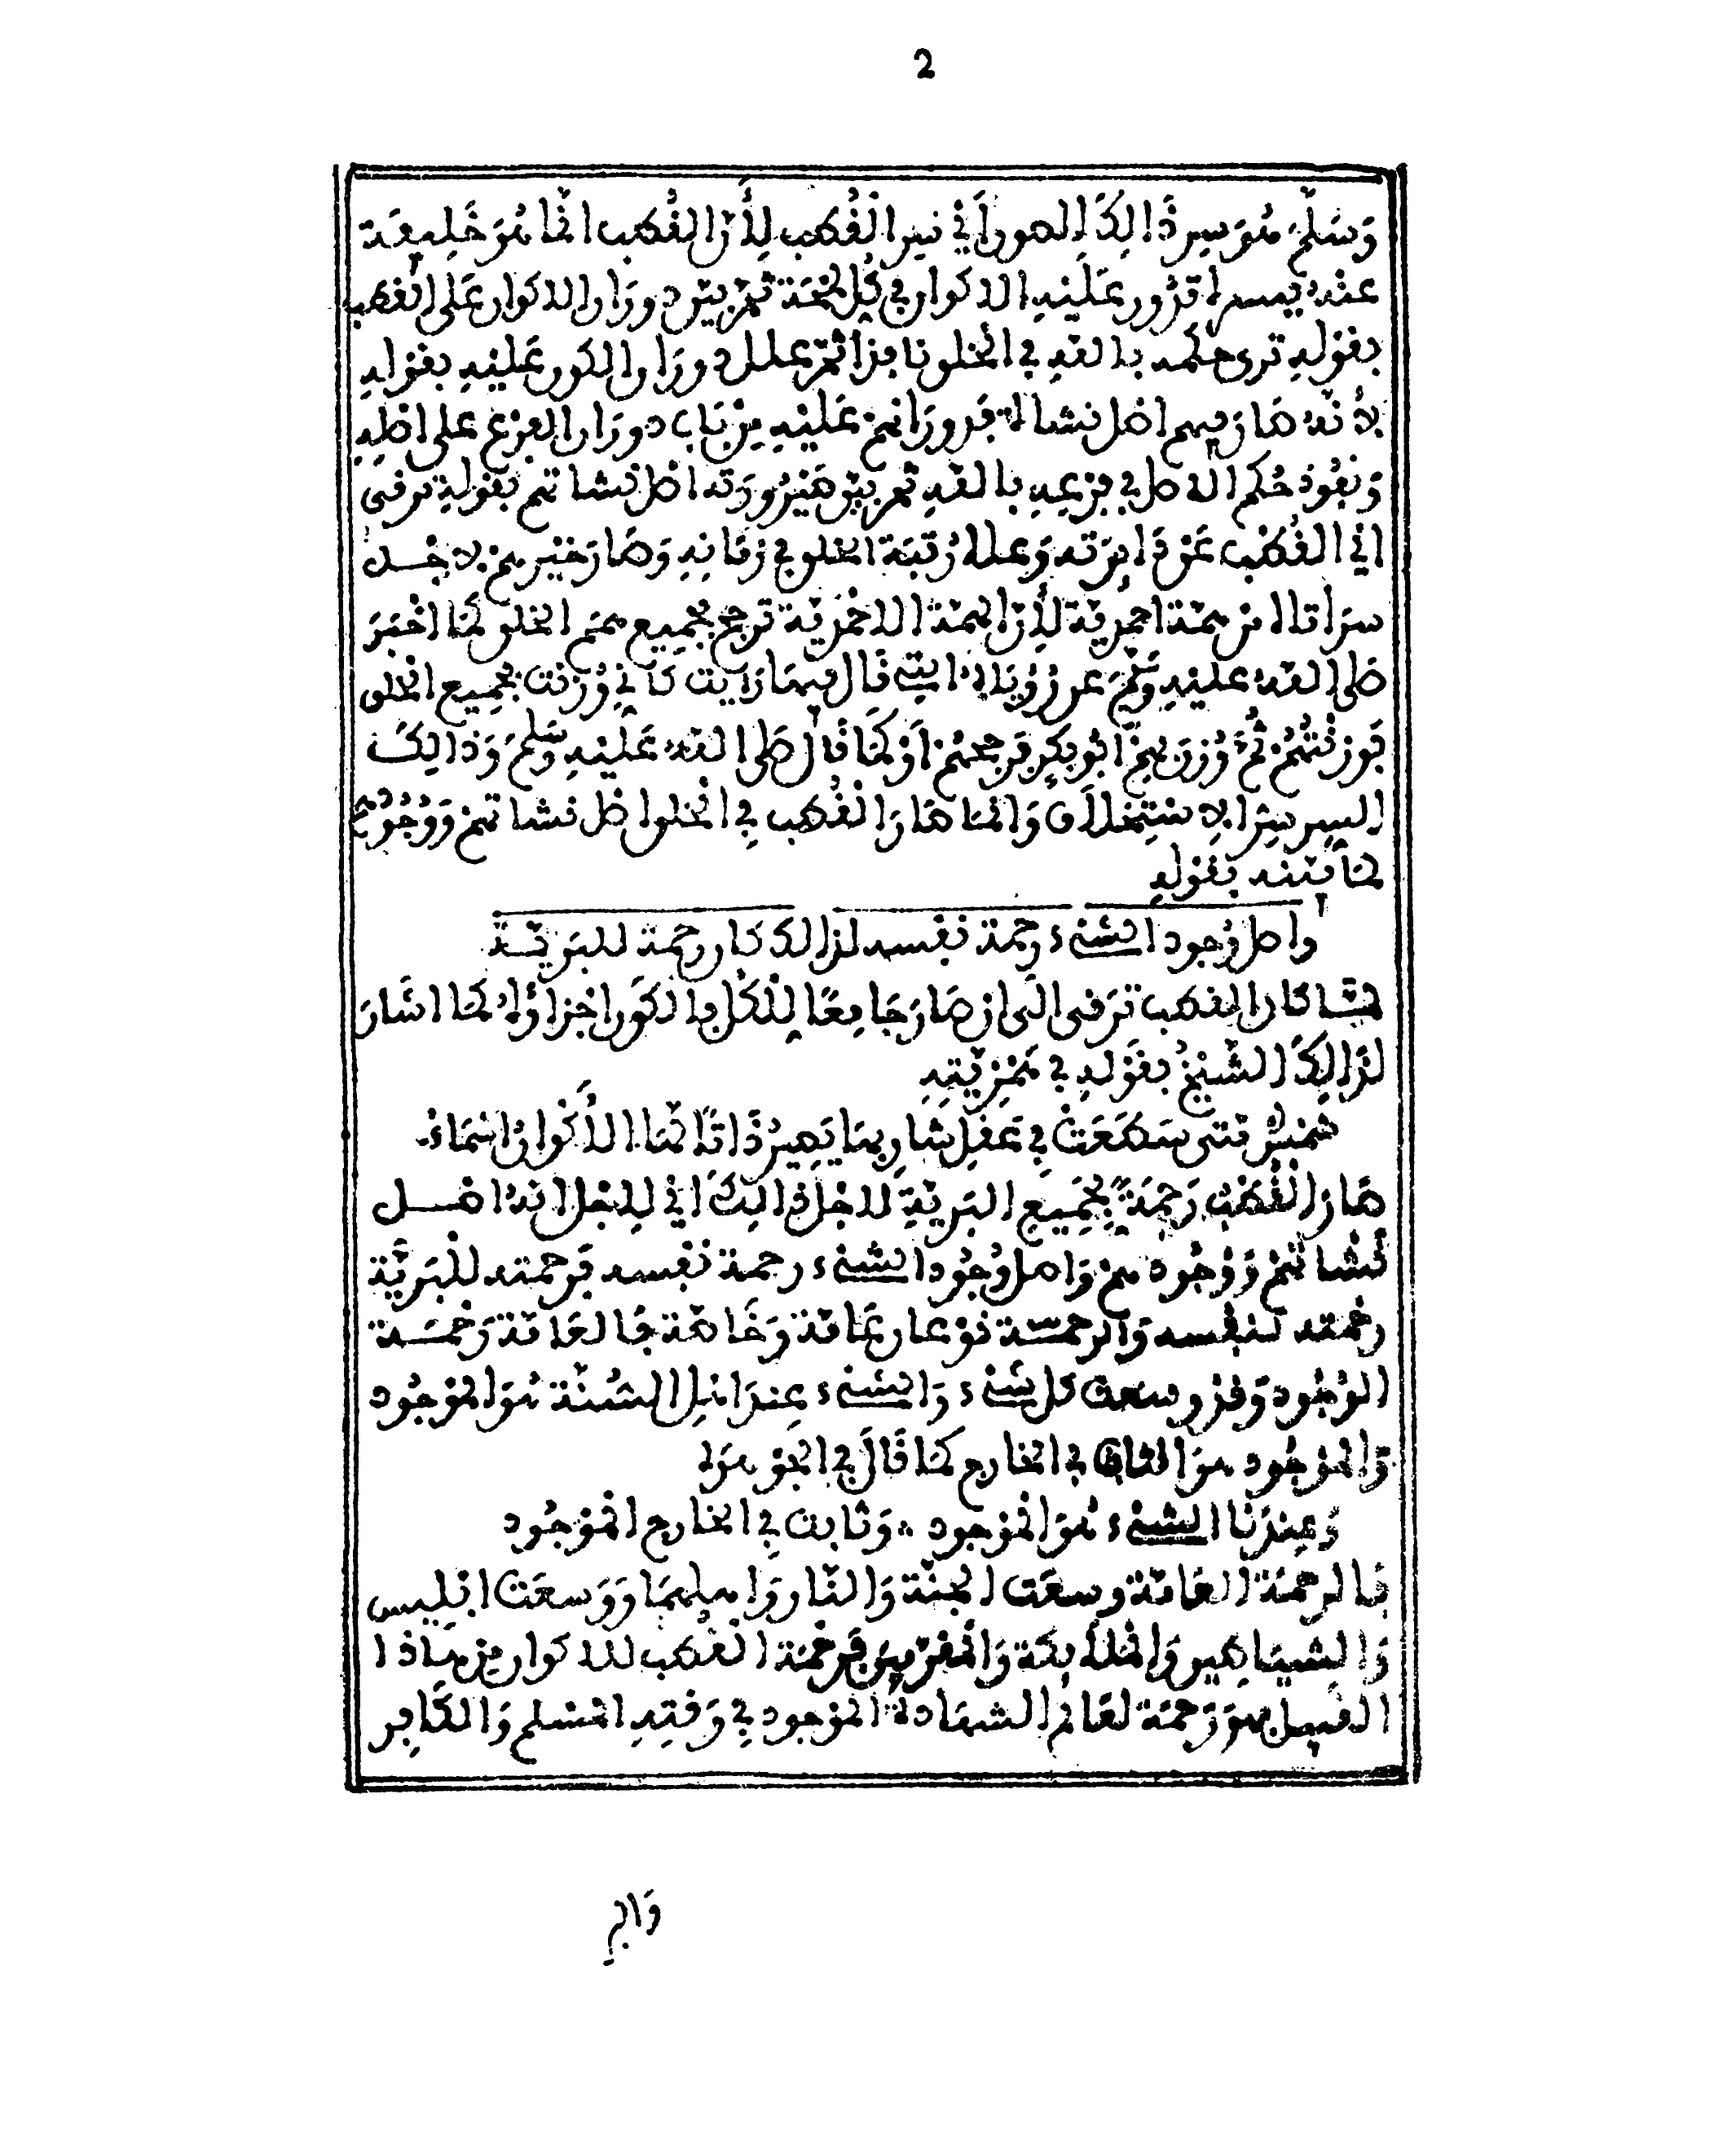 2
وَسَلَّمَ هُوَ سِر ذَالِكَ الصون أي سِر القُطب لِأَن القُطب انما هُوَ خَلِيفَة
عنه بسر تَدُور عَلَيْهِ الاكوان في كُل لمحَة ثم بين دوران الاكوان عَلى القطب
بقوله ترى حكمه بالله في الخلق نافذا ثم علل دوران الكون عَلَيْهِ بقوله
لأنه صار فيهم اصل نشاة فدورانهم عَلَيْهِ مِن بَاب دوران الفرع على اصله
وَنفُوذ حُكم الاصل في فرعه بالله ثم بين صَيرُورَته اصل نشاتهم بقوله ترقى
اي القُطب عَن دَايرته وَعلا رُتبَة الخلق في زمَانه وَصَار خير هم لاجل
سرَاتا من همة احمدية لِأَن الهمة الاحمَدية ترجح بجميع همم الخلق كما اخبَرَ
صَلى الله عليه وَسَلَّمَ عن رُؤيَاه التي قال فيهَا رَايت كَأني وُزنت بجميع الخلق
فَوزنتُهُم ثُمَّ وُزِنَ بِهِمُ أبُو بَكرٍ فَرجحهم أوْ كَمَا قَال صَلى الله عَلَيْهِ وَسَلَّمَ وَذَالِكَ
السر سِرّ الاستِخلَاف وَانما صَارَ القُطب فِي الخلق اصل نشاتهم وَوُجُودهم
لما بَينه بقوله
واصل وُجود الشيء رحمة نفسه لذالك كان رحمة للبَرية
لما كان القطب ترَقى الى ان صَارَ جَامِعًا لِلكُل فالكَون اجزاؤه كَمَا اشَارَ
لذَالِكَ الشيخُ بقَوله في همزيته
شمسٌ متى سَطَعَت فِي عَقل شاربها يَصِيرُ ذَاتًا لهَا الأَكوَانُ اسْمَاءُ
صَارَ القُطبُ رَحمَة لجَمِيع البَرية لاجل ذالِك اي لِاجل انه اصل
نشاتهم وَوُجُودهم وَاصل وُجُود الشيء رحمة نفسه فَرحمته للبَرية
رحمته لنفسه وَالرحمة نوْعان عَامة وَخَاصة فالعَامة رَحمة
الوُجُود وَقد وسعت كل شيء وَالشيء عِندَ اهل السُّنة هُوَ الموْجُود
وَالموْجُود هوَ الثابت في الخارج كمَا قَالَ في الجوْهرَة
وَعِندَنا الشيء هُوَ الموْجود وَثابت فِي الخارج الموْجُود
فالرحمَة العَامة وسعَت الجنة وَالنار وَاهلهمَا وَوَسعَت ابليس
وَالشيَاطين وَالملَائكة وَالمقربين فَرحْمَة القُطب للاكوان من هاذا
القبيل فهوَ رَحمَة لعَالم الشهَادة الموْجود فِي وَقتِه المسْلم وَالكَافِر